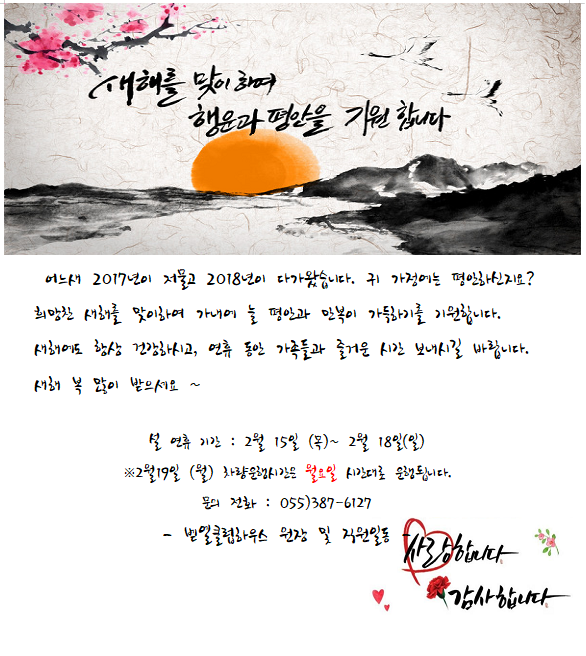 새해를 맞이하며
행운과 평안을 기원합니다
어느새 2017년이 저물고 2018년이 다가왔습니다. 귀 가정에는 평안하신지요?
희망찬 새해를 맞이하여 가내에 늘 평안과 만복이 가득하기를 기원합니다.
새해에도 항상 건강하시고, 연휴 동안 가족들과 즐거운 시간 보내시길 바랍니다.
새해 복 많이 받으세요 ~
설 연휴 기간 : 2월 15일 (목)~ 2월 18일(일)
※2월19일 (월) 차량운행시간은 월요일 시간대로 운행됩니다.
문의 전화 : 055)387-6127
- 반열클럽하우스 원장 및 직원일동
사랑합니다
감사합니다